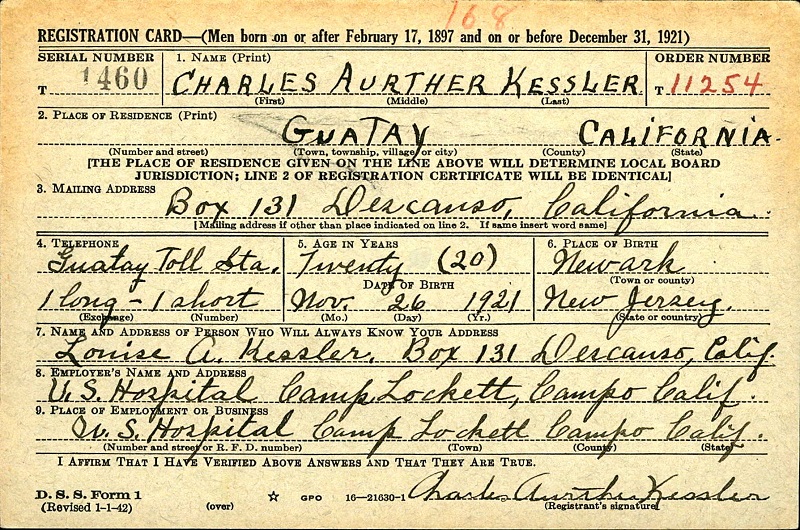 168
REGISTRATION CARD—(Men born on or after February 17, 1897 and on or before December 31, 1921)
SERIAL NUMBER
T 1460
1. NAME (Print)
CHARLES AURTHER KESSLER
(First) (Middle) (Last)
ORDER NUMBER
T 11254
2. PLACE OF RESIDENCE (Print)
GUATAY CALIFORNIA
(Number and street) (Town, township, village, or city) (County) (State)
[THE PLACE OF RESIDENCE GIVEN ON THE LINE ABOVE WILL DETERMINE LOCAL BOARD
JURISDICTION; LINE 2 OF REGISTRATION CERTIFICATE WILL BE IDENTICAL]
3. MAILING ADDRESS
Box 131 Descanso, California.
[Mailing address if other than place indicated on line 2. If same insert word same]
4. TELEPHONE
Guatay Toll Sta.
1 long - 1 short
(Exchange) (Number)
5. AGE IN YEARS
Twenty (20)
DATE OF BIRTH
Nov. 26 1921
(Mo.) (Day) (Yr.)
6. PLACE OF BIRTH
Newark
(Town or county)
New Jersey.
(State or country)
7. NAME AND ADDRESS OF PERSON WHO WILL ALWAYS KNOW YOUR ADDRESS
Louise A. Kessler. Box 131 Descanso, Calif.
8. EMPLOYER'S NAME AND ADDRESS
U.S. Hospital Camp Lockett, Campo Calif.
9. PLACE OF EMPLOYMENT OR BUSINESS
U.S. Hospital Camp Lockett Campo Calif.
(Number and street or R. F. D. number) (Town) (County) (State)
I AFFIRM THAT I HAVE VERIFIED ABOVE ANSWERS AND THAT THEY ARE TRUE.
D. S. S. Form 1
(Revised 1-1-42) (over) ☆ GPO 16—21630-1
Charles Aurther Kessler
(Registrant's signature)